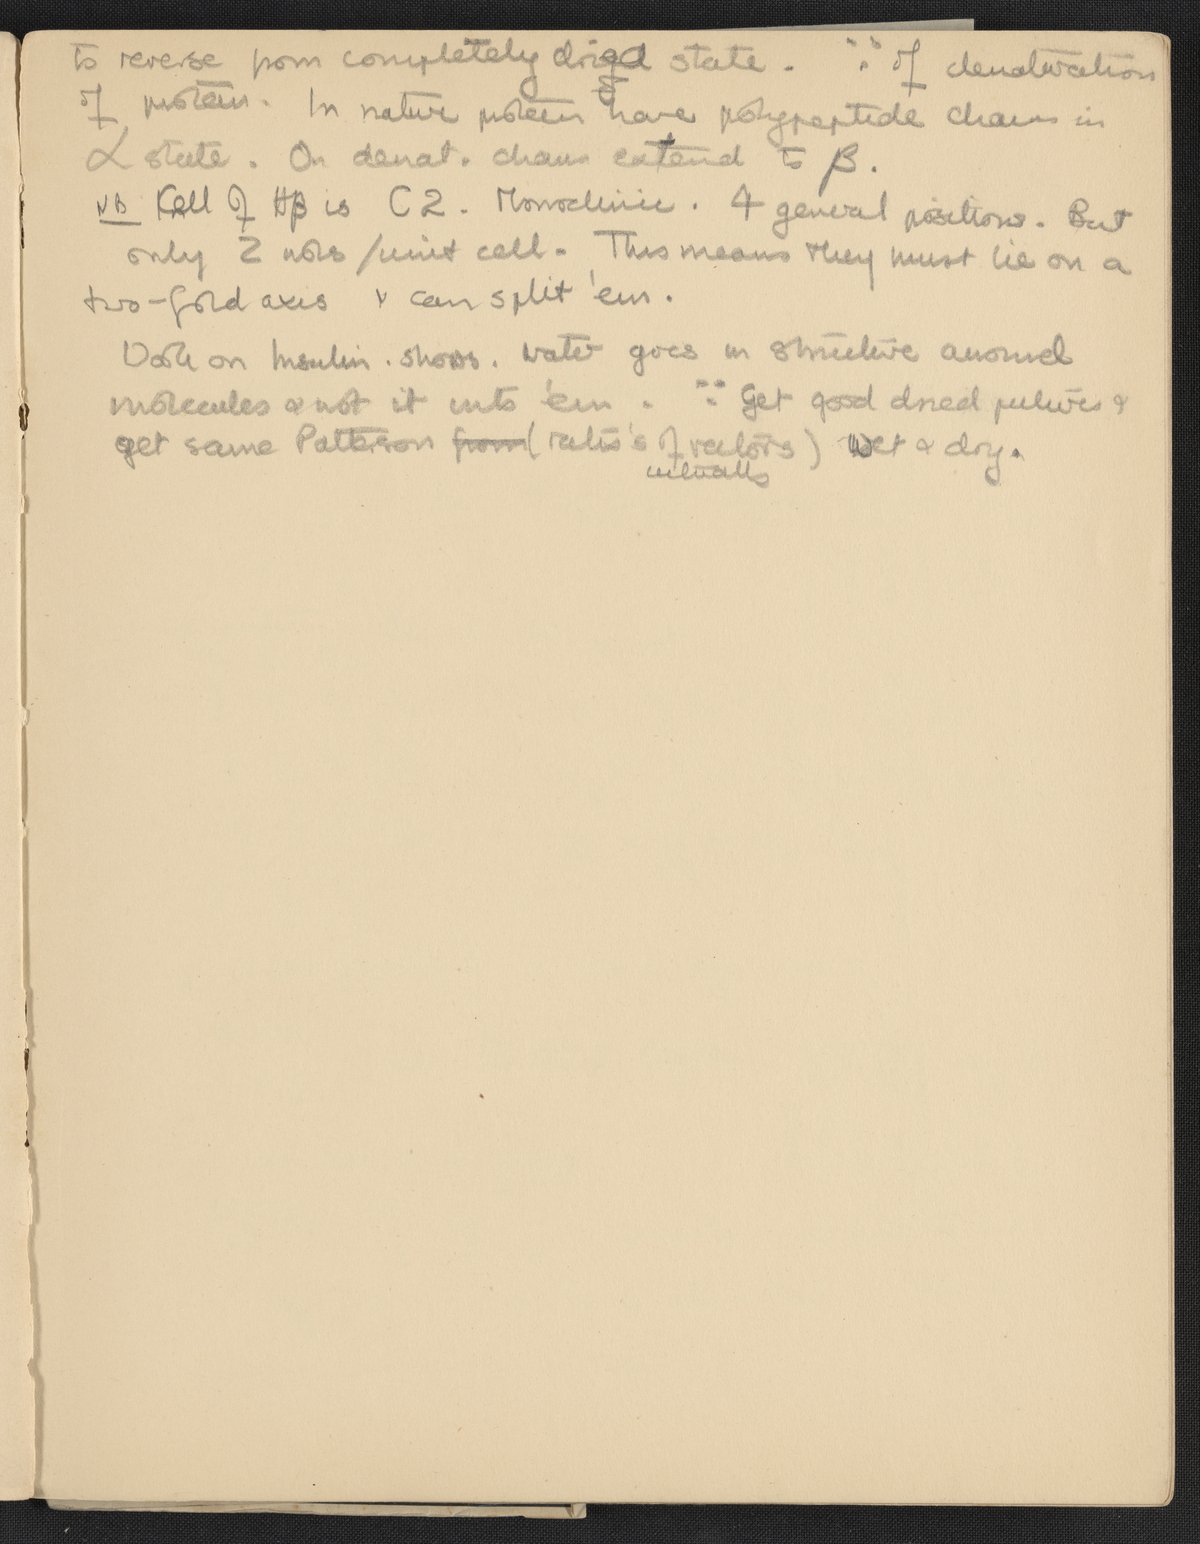 to reverse from completely dried state. ∵ of denaturation
of protein. In nature protein have polypeptide chains in
α state. On denat. chains extend to β.
NB Cell of Hβ is C2. Monoclinic. 4 general positions. But
only 2 mols /unit cell. This means they must lie on a
two-fold axis & can split 'em.
Work on Insulin. shows. water goes in structure around
molecules & not it into 'em. ∴ Get good dried pictures &
get same Patterson from (ratio's of vectors) wet & dry.